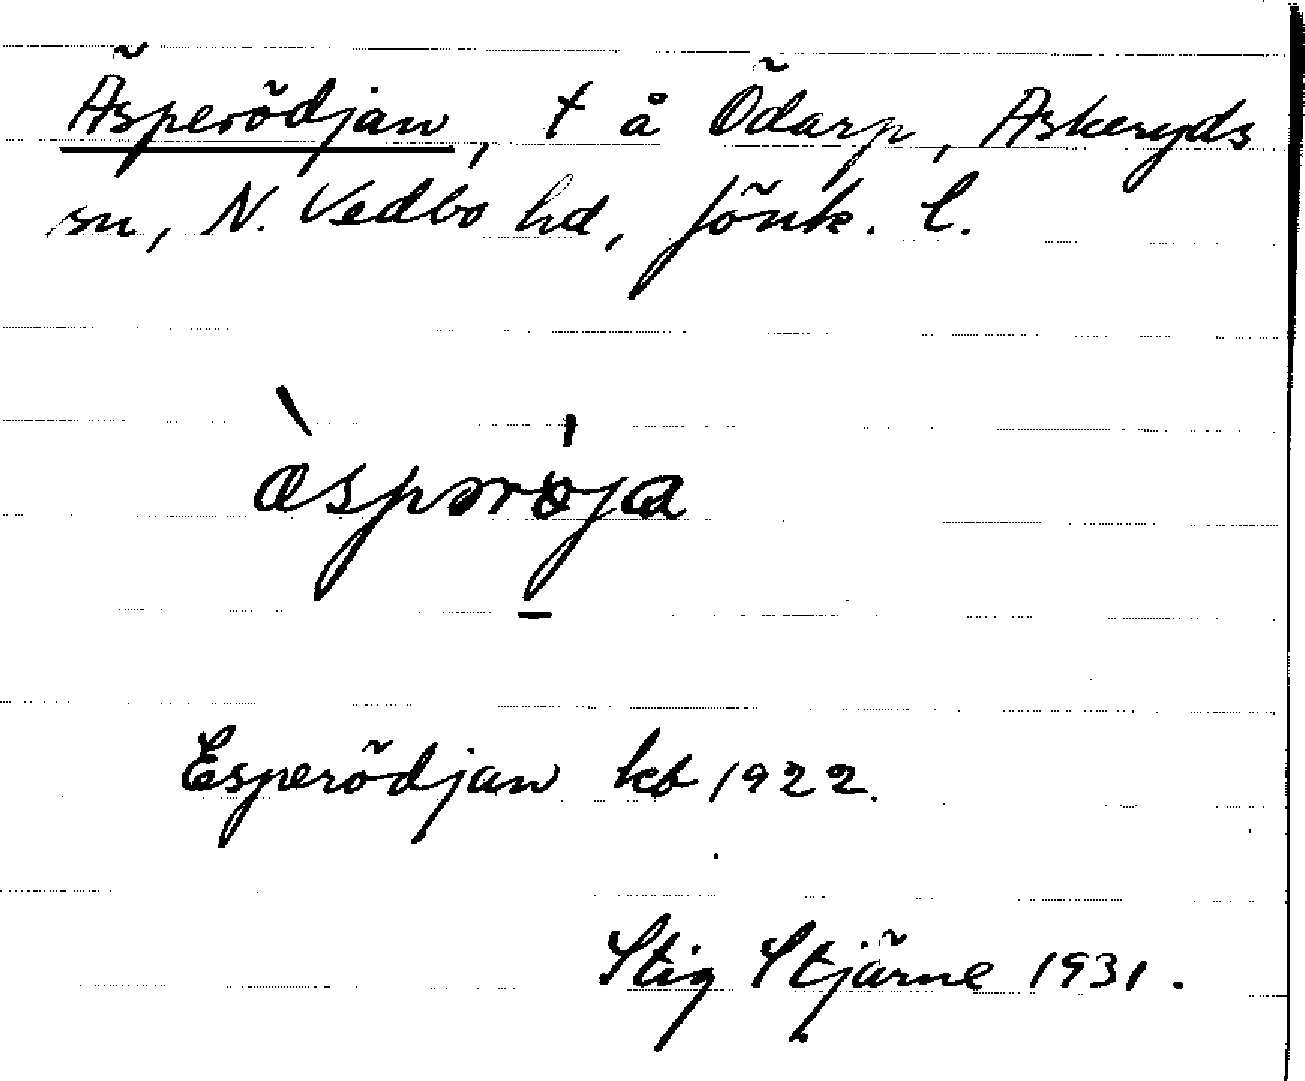 Äsperödjan, t å Ödarp, Askeryds
sn, N. Vedbo hd, Jönk. l.
æ̀spərø̍ja
Esperödjan kb 1922.
Stig Stjärne 1931.